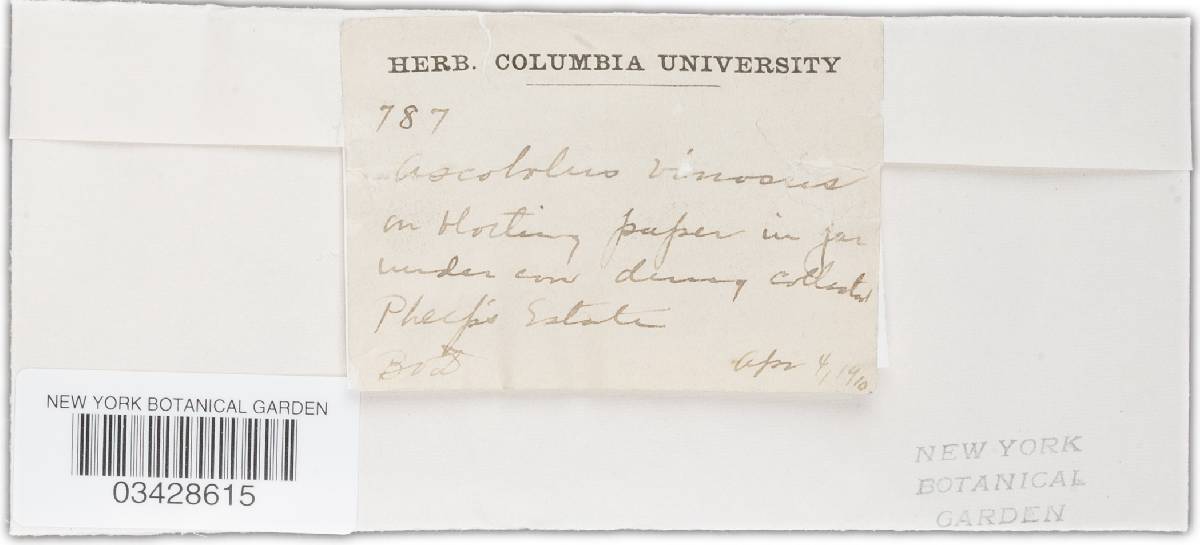 HERB. COLUMBIA UNIVERSITY
787
Ascobolus vinosus
on blotting paper in jar
under cow dung collected
Phelps Estate
B.O.D
Apr 4, 1910.
NEW YORK BOTANICAL GARDEN
03428615
NEW YORK
BOTANICAL
GARDEN